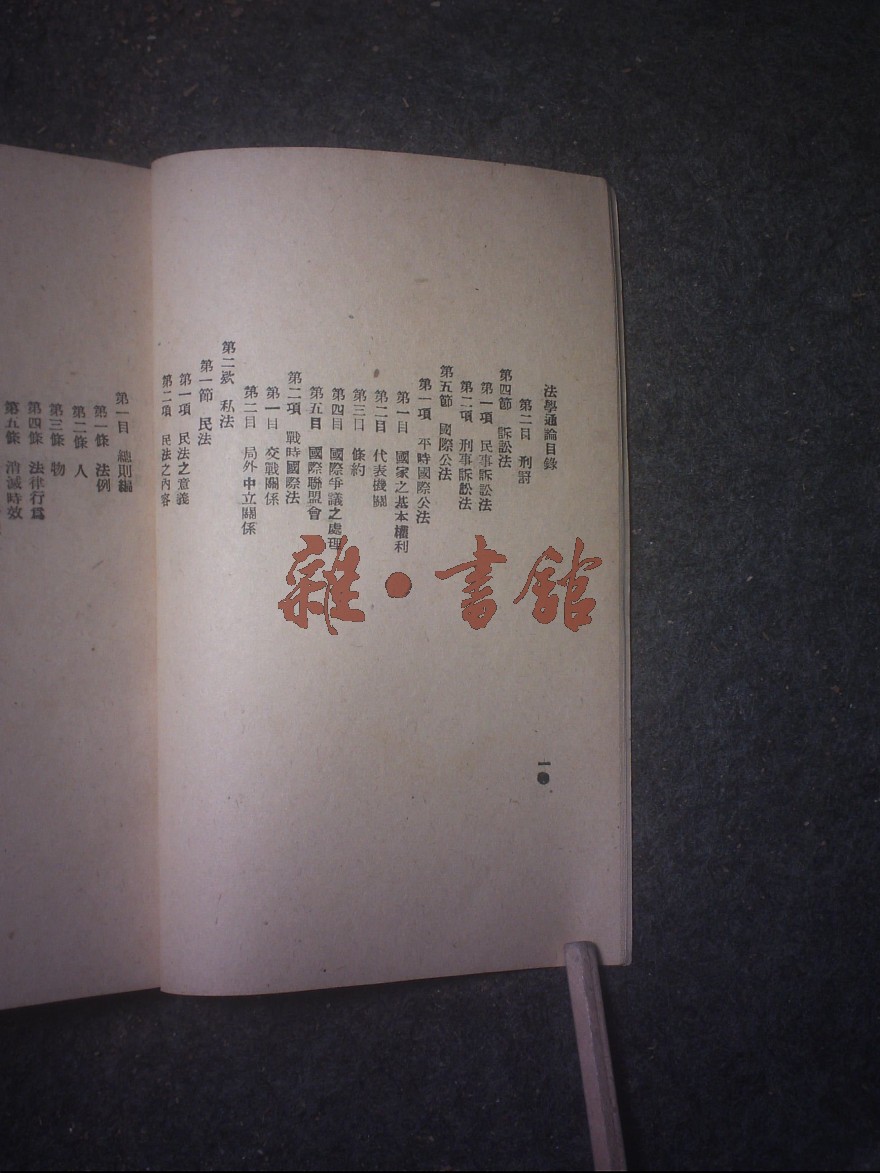 法學通論目錄
第二目 刑罰
第四節 訴訟法
第一項 民事訴訟法
第二項 刑事訴訟法
第五節 國際公法
第一項 平時國際公法
第一目 國家之基本權利
第二目 代表機關
第三目 條約
第四目 國際爭議之處理
第五目 國際聯盟會
第二項 戰時國際法
第一目 交戰關係
第二目 局外中立關係
第二欵 私法
第一節 民法
第一項 民法之意義
第二項 民法之內容
一〇
第一目 總則編
第一條 法例
第二條 人
第三條 物
第四條 法律行爲
第五條 消滅時效
雜·書館